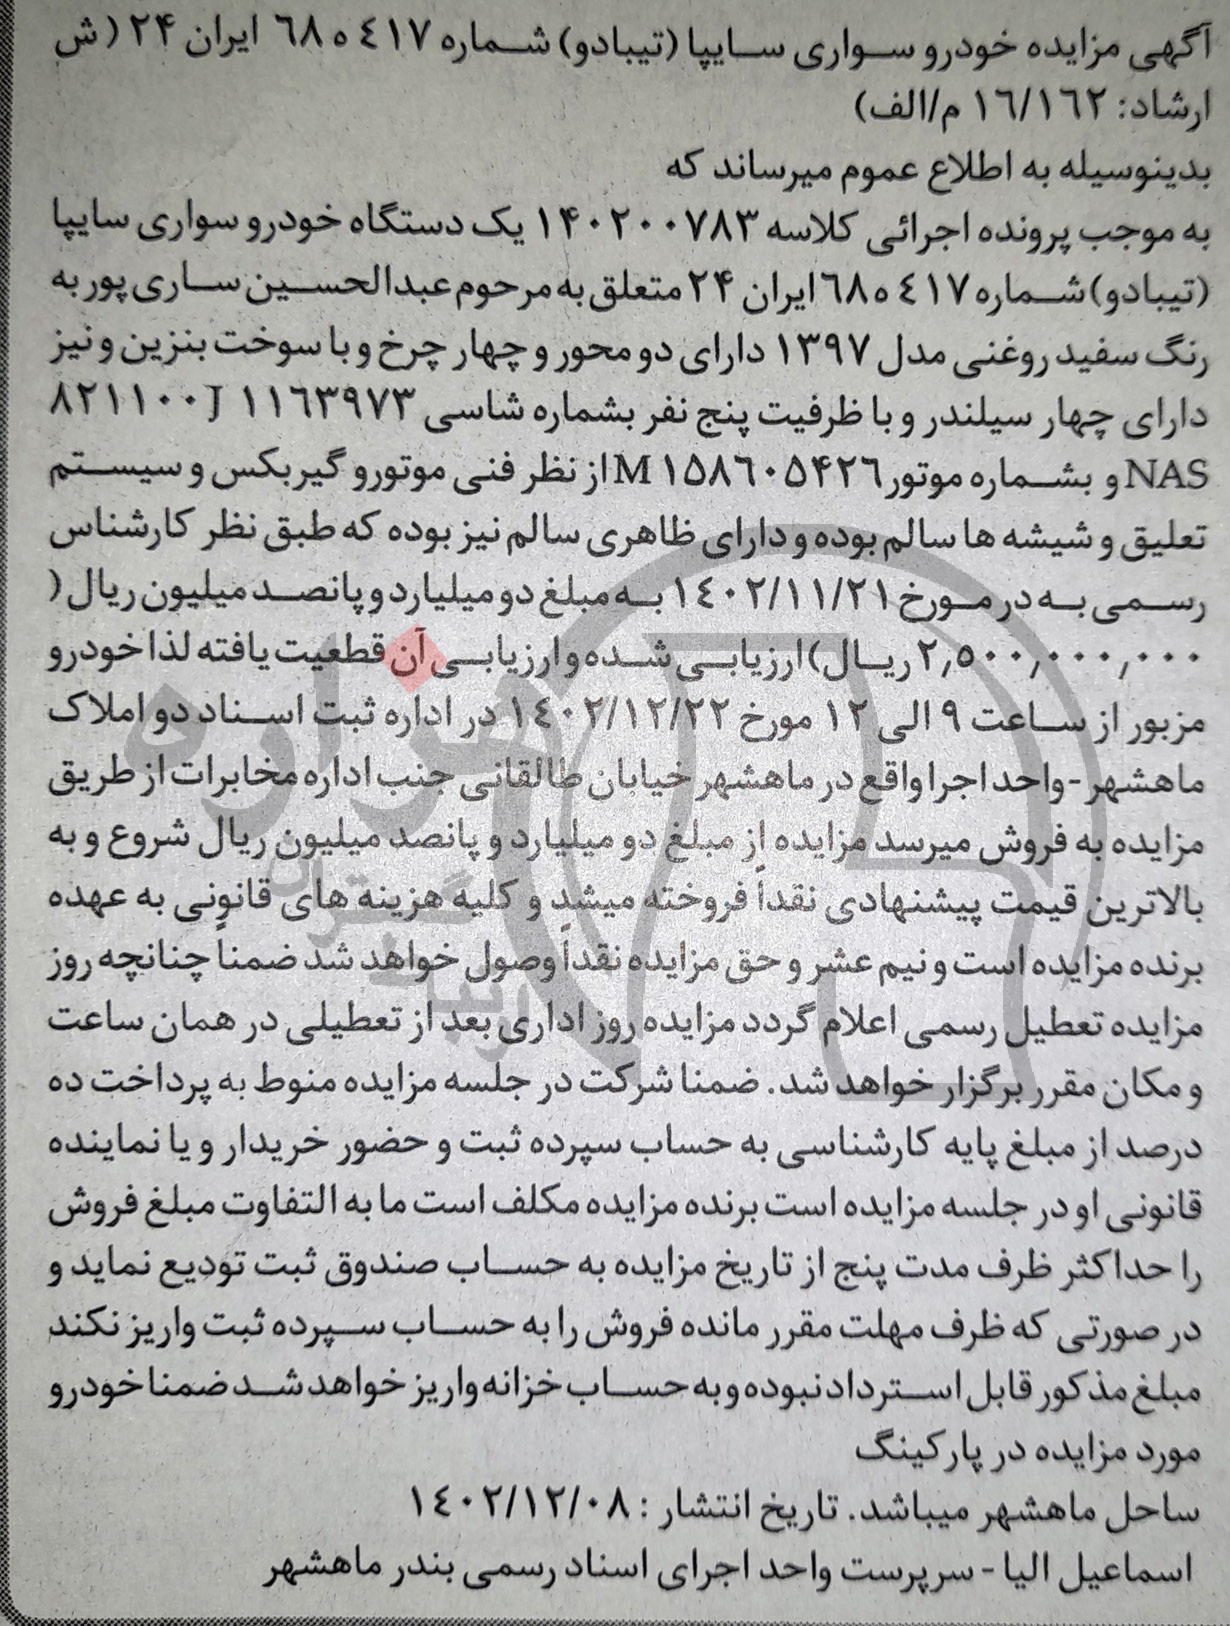 آگهی مزایده خودرو سواری سایپا (تیبادو) شماره ٤١٧ ٥ ٦٨ ایران ۲۴ ( ش
ارشاد: ١٦/١٦٢ م/الف)
بدینوسیله به اطلاع عموم میرساند که
به موجب پرونده اجرائی کلاسه ۱۴۰۲۰۰۷۸۳ یک دستگاه خودرو سواری سایپا
(تیبادو) شماره ٤١٧ ٥ ٦٨ ایران ۲۴ متعلق به مرحوم عبدالحسین ساری پور به
رنگ سفید روغنی مدل ۱۳۹۷ دارای دو محور و چهار چرخ و با سوخت بنزین و نیز
دارای چهار سیلندر و با ظرفیت پنج نفر بشماره شاسی ٨٢١١٠٠J ١١٦٣٩٧٣
NAS و بشماره موتور M ١٥٨٦٠٥۴٢٦ از نظر فنی موتورو گیربکس و سیستم
تعلیق و شیشه ها سالم بوده و دارای ظاهری سالم نیز بوده که طبق نظر کارشناس
رسمی به در مورخ ١٤٠٢/١١/٢١ به مبلغ دو میلیارد و پانصد میلیون ریال (
۲٫۵۰۰٫۰۰۰٫۰۰۰ ریال) ارزیابی شده و ارزیابی آن قطعیت یافته لذا خودرو
مزبور از ساعت ۹ الی ۱۲ مورخ ١٤٠٢/١٢/٢٢ در اداره ثبت اسناد دو املاک
ماهشهر -واحد اجرا واقع در ماهشهر خیابان طالقانی جنب اداره مخابرات از طریق
مزایده به فروش میرسد مزایده از مبلغ دو میلیارد و پانصد میلیون ریال شروع و به
بالاترین قیمت پیشنهادی نقداً فروخته میشد و کلیه هزینه های قانونی به عهده
برنده مزایده است و نیم عشر و حق مزایده نقداً وصول خواهد شد ضمناً چنانچه روز
مزایده تعطیل رسمی اعلام گردد مزایده روز اداری بعد از تعطیلی در همان ساعت
و مکان مقرر برگزار خواهد شد. ضمنا شرکت در جلسه مزایده منوط به پرداخت ده
درصد از مبلغ پایه کارشناسی به حساب سپرده ثبت و حضور خریدار و یا نماینده
قانونی او در جلسه مزایده است برنده مزایده مکلف است ما به التفاوت مبلغ فروش
را حداکثر ظرف مدت پنج از تاریخ مزایده به حساب صندوق ثبت تودیع نماید و
در صورتی که ظرف مهلت مقرر مانده فروش را به حساب سپرده ثبت واریز نکند
مبلغ مذکور قابل استرداد نبوده و به حساب خزانه واریز خواهد شد ضمنا خودرو
مورد مزایده در پارکینگ
ساحل ماهشهر میباشد. تاریخ انتشار : ١٤٠٢/١٢/٠٨
اسماعیل الیا - سرپرست واحد اجرای اسناد رسمی بندر ماهشهر